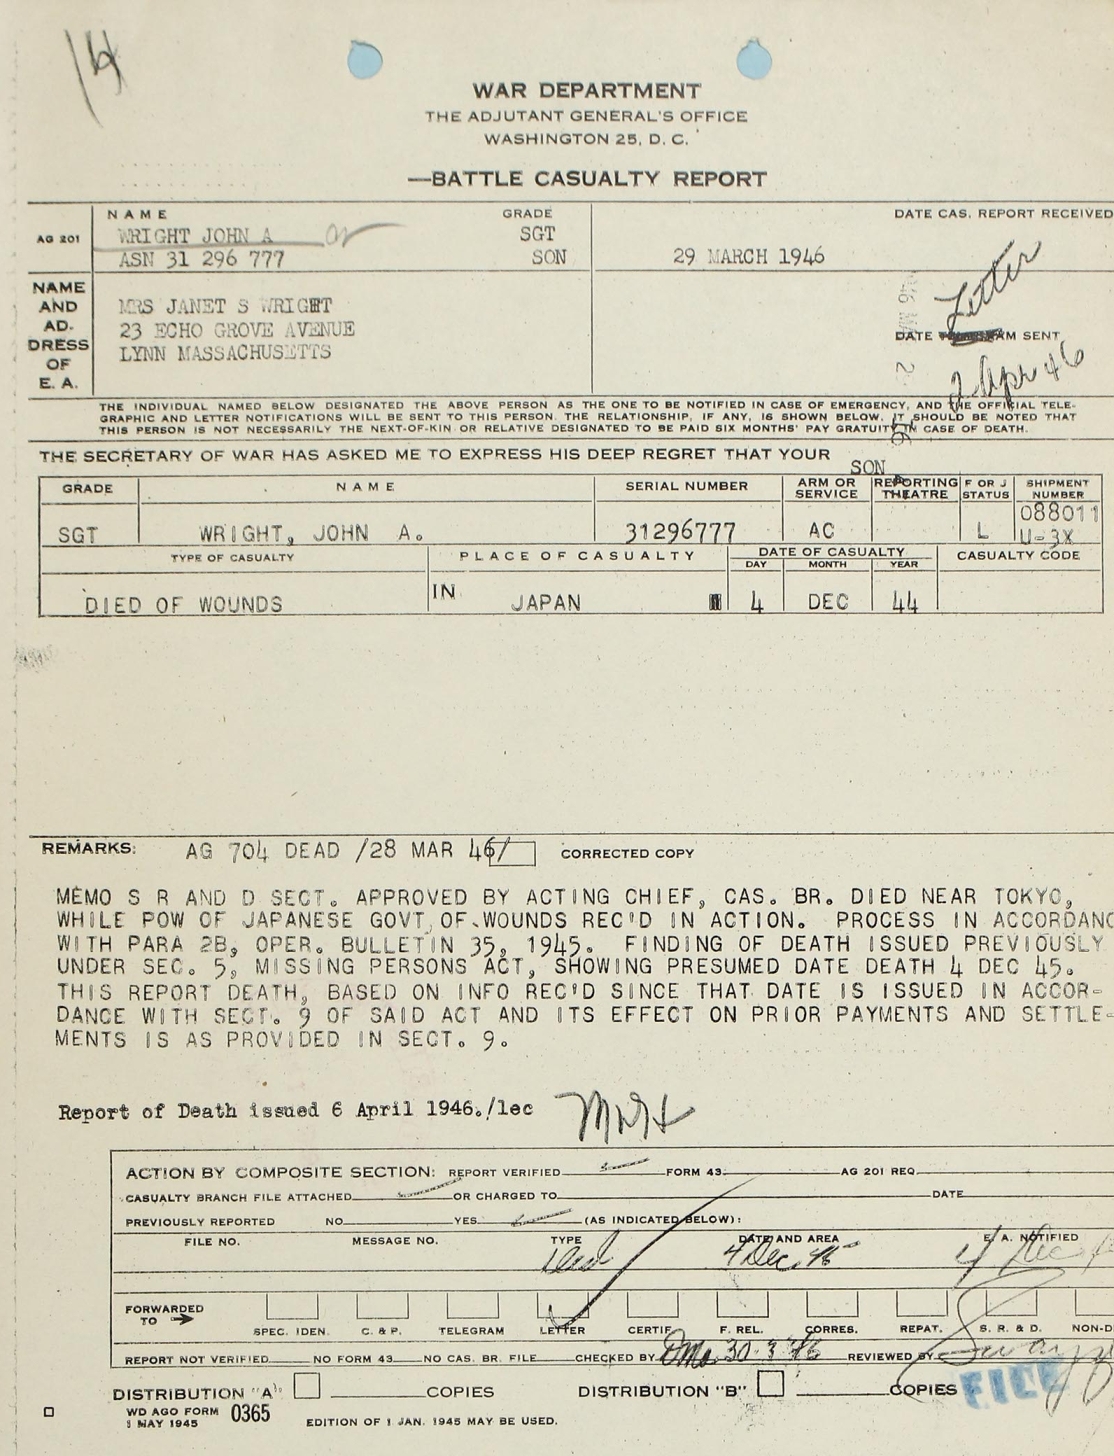 14
WAR DEPARTMENT
THE ADJUTANT GENERAL'S OFFICE
WASHINGTON 25, D. C.
—BATTLE CASUALTY REPORT
NAME GRADE DATE CAS. REPORT RECEIVED
AG 201 WRIGHT JOHN A SGT
ASN 31 296 777 SON 29 MARCH 1946
NAME AND AD- DRESS OF E. A.
MRS JANET S WRIGHT
23 ECHO GROVE AVENUE
LYNN MASSACHUSETTS
Letter
DATE SENT
2 Apr 46
THE INDIVIDUAL NAMED BELOW DESIGNATED THE ABOVE PERSON AS THE ONE TO BE NOTIFIED IN CASE OF EMERGENCY, AND THE OFFICIAL TELE-
GRAPHIC AND LETTER NOTIFICATIONS WILL BE SENT TO THIS PERSON. THE RELATIONSHIP, IF ANY, IS SHOWN BELOW. IT SHOULD BE NOTED THAT
THIS PERSON IS NOT NECESSARILY THE NEXT-OF-KIN OR RELATIVE DESIGNATED TO BE PAID SIX MONTHS' PAY GRATUITY IN CASE OF DEATH.
THE SECRETARY OF WAR HAS ASKED ME TO EXPRESS HIS DEEP REGRET THAT YOUR
SON
GRADE NAME SERIAL NUMBER ARM OR SERVICE REPORTING THEATRE F OR J STATUS SHIPMENT NUMBER
088011
SGT WRIGHT, JOHN A. 31296777 AC L U-3X
TYPE OF CASUALTY PLACE OF CASUALTY DATE OF CASUALTY CASUALTY CODE
DAY MONTH YEAR
DIED OF WOUNDS IN JAPAN 4 DEC 44
REMARKS: AG 704 DEAD /28 MAR 46/ CORRECTED COPY
MEMO S R AND D SECT. APPROVED BY ACTING CHIEF, CAS. BR. DIED NEAR TOKYO,
WHILE POW OF JAPANESE GOVT, OF WOUNDS REC'D IN ACTION. PROCESS IN ACCORDANC
WITH PARA 2B, OPER. BULLETIN 35, 1945. FINDING OF DEATH ISSUED PREVIOUSLY
UNDER SEC. 5, MISSING PERSONS ACT, SHOWING PRESUMED DATE DEATH 4 DEC 45.
THIS REPORT DEATH, BASED ON INFO REC'D SINCE THAT DATE IS ISSUED IN ACCOR-
DANCE WITH SECT. 9 OF SAID ACT AND ITS EFFECT ON PRIOR PAYMENTS AND SETTLE-
MENTS IS AS PROVIDED IN SECT. 9.
Report of Death issued 6 April 1946./lec
ACTION BY COMPOSITE SECTION: REPORT VERIFIED FORM 43 AG 201 REQ.
CASUALTY BRANCH FILE ATTACHED OR CHARGED TO DATE
PREVIOUSLY REPORTED NO YES (AS INDICATED BELOW):
FILE NO. MESSAGE NO. TYPE DATE AND AREA E. A. NOTIFIED
4 Dec 45 4 Dec
FORWARDED TO
SPEC. IDEN. C. & P. TELEGRAM LETTER CERTIF. F. REL. CORRES. REPAT. S. R. & D. NON-D
REPORT NOT VERIFIED NO FORM 43 NO CAS. BR. FILE CHECKED BY 30-3-46 REVIEWED BY
DISTRIBUTION "A" COPIES DISTRIBUTION "B" COPIES FILE
WD AGO FORM 0365
1 MAY 1945 EDITION OF 1 JAN. 1945 MAY BE USED.